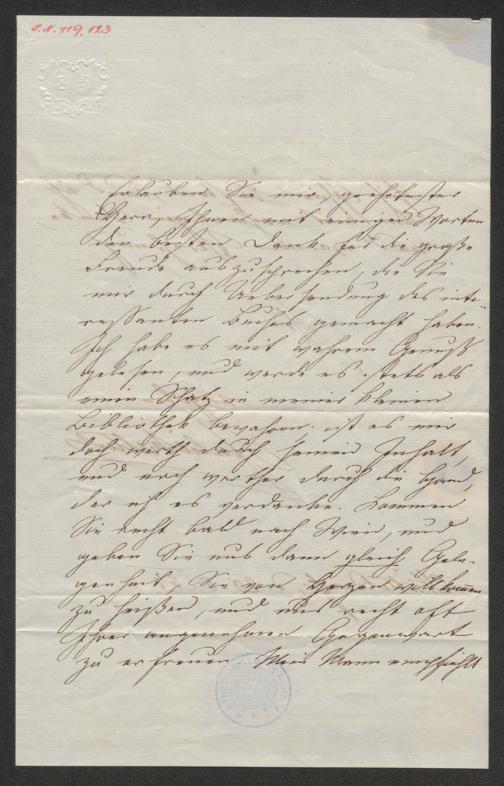 I.N. 119.123
Erlauben Sie mir, geehrtester
Herr, Ihnen mit einigen Worten
den besten Dank für die große
Freude auszusprechen, die Sie
mir durch Uebersendung des inte-
ressanten Buches gemacht haben.
Ich habe es mit wahrem Genuß
gelesen, und werde es stets als
einen Schatz in meiner kleinen
Bibliothek bewahren. ist es mir
doch werth durch seinen Inhalt,
und noch werther durch die Hand
der ich es verdanke. Kommen
Sie recht bald nach Wien, und
geben Sie uns dann gleich Gele-
genheit Sie von Herzen willkommen
zu heißen, und uns recht oft
Ihrer angenehmen Gegenwart
zu erfreuen. Mein Mann empfiehlt